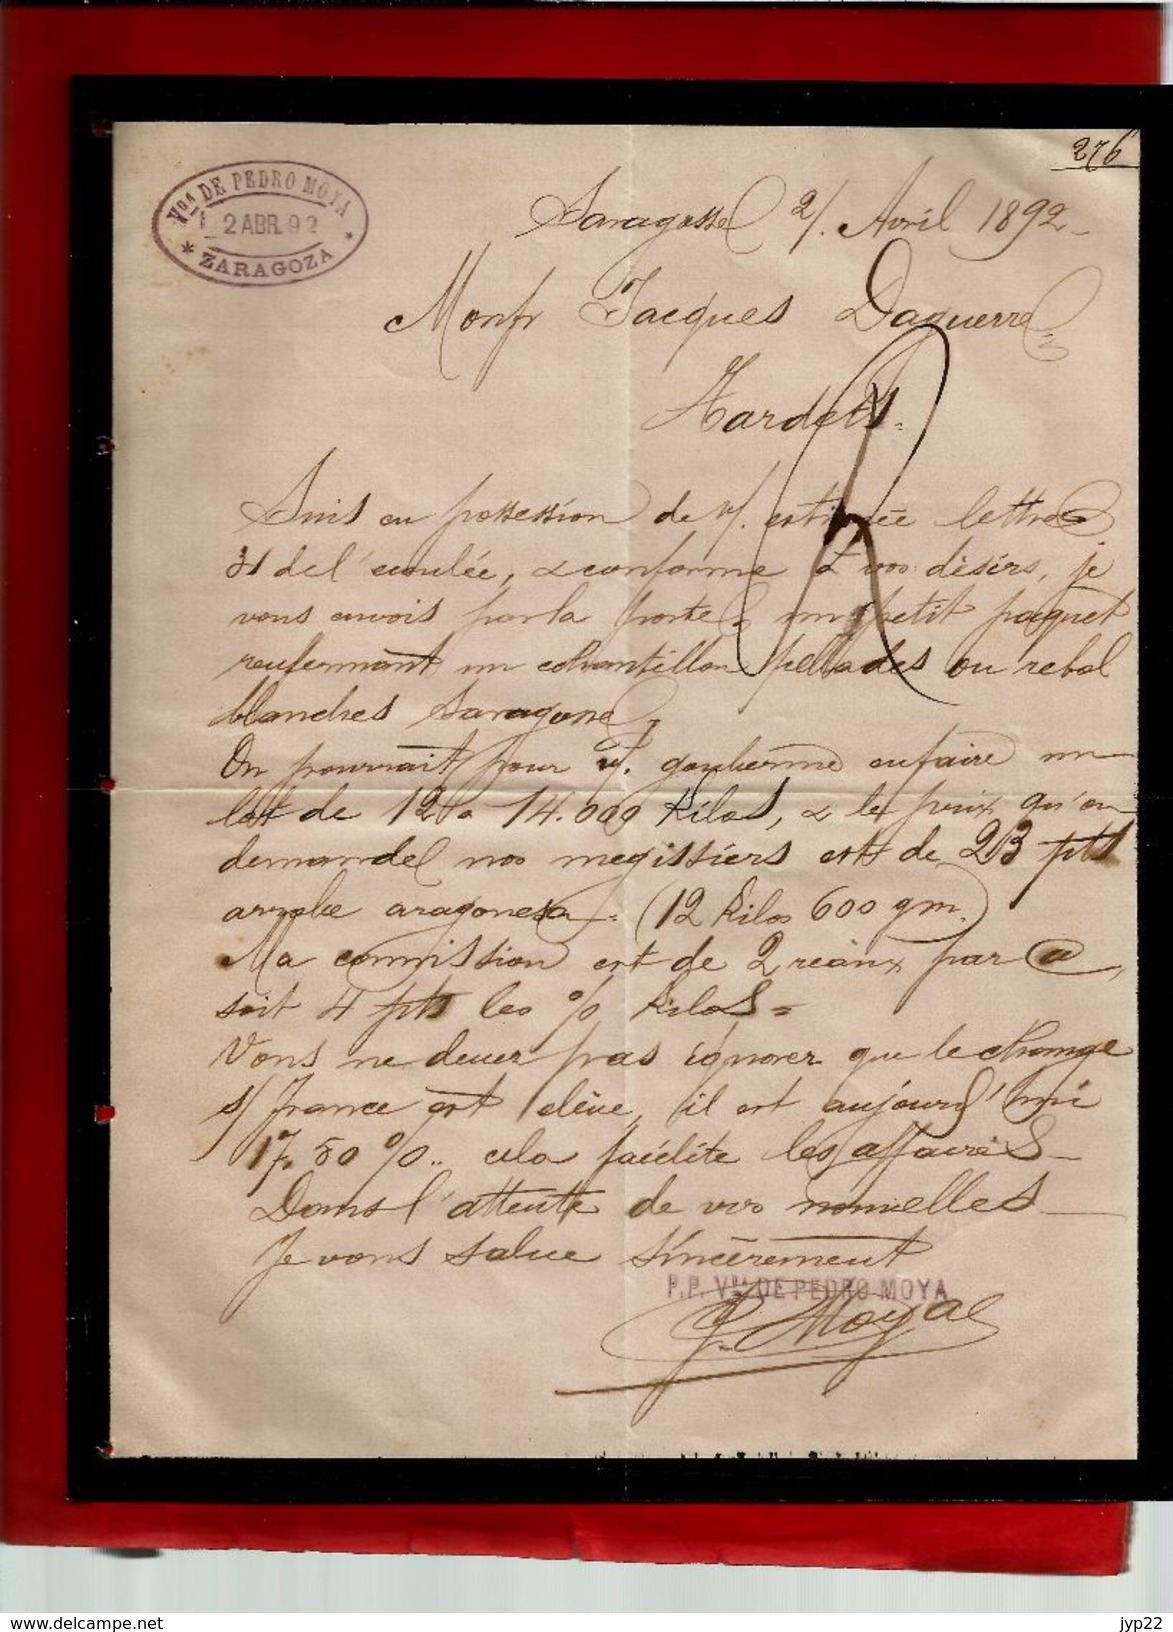 276
Vda DE PEDRO MOYA
2 ABR. 92
* ZARAGOZA *
Saragosse 2/. Avril 1892
Monsr Jacques Daguerre
Tardets.
Suis en possession de v/. estimée lettre
31 del'écoulée, & conforme à vos désirs, je
vous envois par la poste un petit paquet
renfermant un echantillon pellades ou rebol
blanches Saragosse
On pourrait pour v/. gouberne en faire un
lot de 12 a 14.000 Kilos, & le prix qu'on
demande nos megissiers est de 23 pts
arrobe aragonesa. (12 Kilos 600 gm.)
Ma commission est de 2 reaux par @,
soit 4 pts les % Kilos =
Vous ne devez pas ignorer que le change
s/ france est éléve, il est aujourd'hui
17,50 %.. cela facilite les affaires
Dans l'attente de vos nouvelles
Je vous salue sincèrement
P.P. Vda DE PEDRO MOYA
J. Moya
www.delcampe.net
jyp22